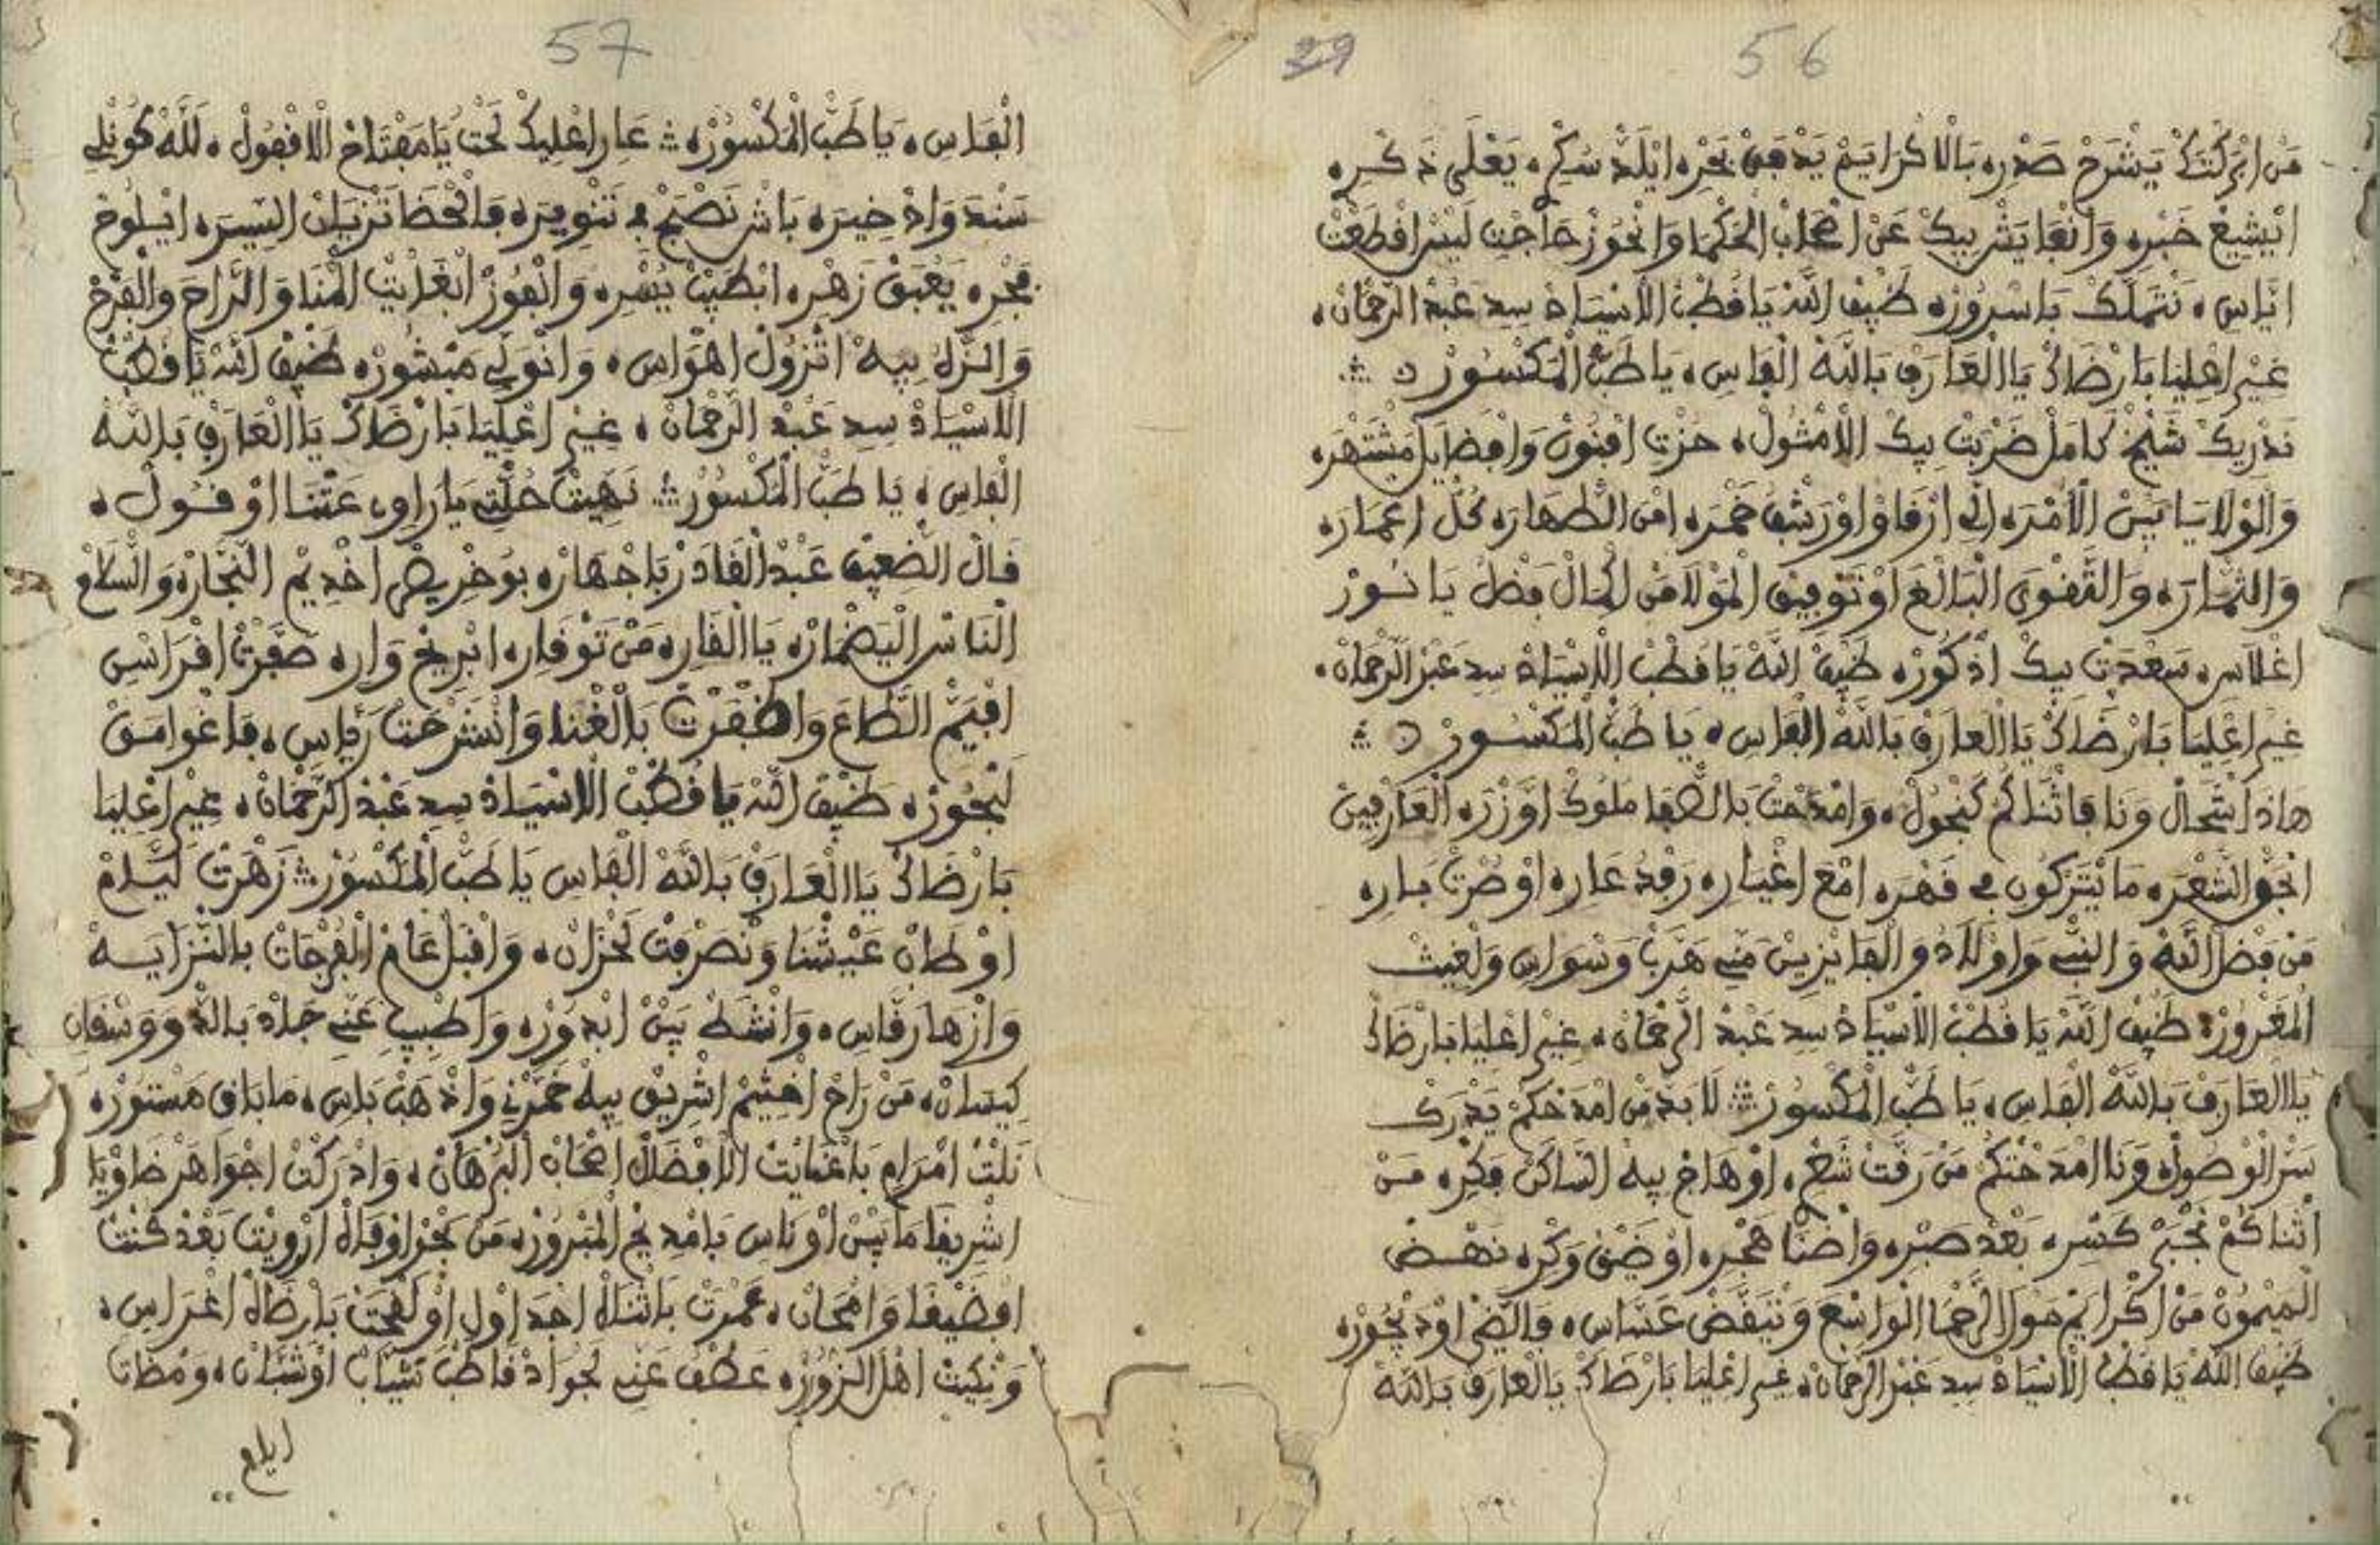 56
29
من ابركتك يشرح صدره بالاكرايم يدفق بحره ايلذ سكره يعلى ذكره
انيشيع خبره وانعايشر بيك عن اصحاب الحكما وانحوز حاجت ليس افطعت
اناس نتملك باسروره ضيف الله يا قطب الاسياد سيد عبد الرحمان
غير اعليا بارضاك يا العارف بالله الفاس يا طب المكسور
ندريك شيخ كامل ضربت بيك الامثول حزت افنون وافضايل مشتهره
والولايا بين الامره الى ارفاو اورشف خمره امن الطهاره كل اعماره
والثماره والتقوى البالغ او توفيق المولا من الحال فضل يا نور
اغلاس سعدت بيك اذكوره ضيف الله يا قطب الاسياد سيد عبد الرحمان
غير اعليا بارضاك يا العارف بالله الفاس يا طب المكسور
هاذا شحال ونا فاثناكم كنجول وامدحت بالصفا ملوك اوزره العارفين
انجو الشعره مايتركون في قهره امع اغياره رفد عاره اوضرت باره
من فضل الله والنبي واولاد والفايزين مني هرب وسواس ولغيث
المغروره ضيف الله يا قطب الاسياد سيد عبد الرحمان غير اعليا بارضاك
يا العارف بالله الفاس يا طب المكسور لابد من امدحكم يدرك
سر الوصول ونا امدحتكم من رقت شع اوهاج بيه الساكن فكره من
اثناكم نجبر كسره بعد صبره واضنا هجره اوضيق وكره نهض
الميمون من اكرايم مول الرحما الواسع ونتيقض عساس والضي اوديجوره
ضيف الله يا قطب الاسياد سيد عبد الرحمان غير اعليا بارضاك يا العارف بالله
57
الفاس يا طب المكسوره عار اعليك تحت يا مفتاح الاقفول لله كونلي
سند واذخيره باش نصبح في تنويره فالحظا تزيان السيره ايلوح
فجره يعبق زهره ابطيب يسره وانفوز ابغايت المنا والراح والفرح
والنزله بيه اتزول اهواس وانولي مبشوره ضيف الله يا قطب
الاسياد سيد عبد الرحمان غير اعليا بارضاك يا العارف بالله
الفاس يا طب المكسور نهيت حلتي يا راوي عتنا اوقول
قال الضعيف عبد القادر باجهاره بوخريص اخديم النجاره والسلام
الناس اليضماره يا القاره من توقاره ابريخ واره صفرت افراس
افيتم الطاع واظفرت بالغنا وانشرحت رياس فاغوامق
لبحوره ضيف الله يا قطب الاسياد سيد عبد الرحمان غير اعليا
بارضاك يا العارف بالله الفاس يا طب المكسور زهرت ليام
اوطاب عيشنا ونصرفت لحزان واقبل عام الفرجات بالنزايه
وازهار قاس وانشط بين ابدوره واطبيب عني جاد بالدو وسقان
كيسان من راح اختيم اشريق بيه خمرني واذهب باس ما باقي مستوره
نلت امرام باعنايت الافضال اصحاب البرهان وادركت اجواهر ضاويا
اشريفا مابين اوناس بامديح المبروره من بحر اوفاله ارويت بعد كنت
افضيفا وامحان عمرت باثناه اجداول اولقحت بارضاه اغراس
ونكيت اهل الزوره عطف عني لجواد فاطب نشاب اوشبان ومضات
ايلع